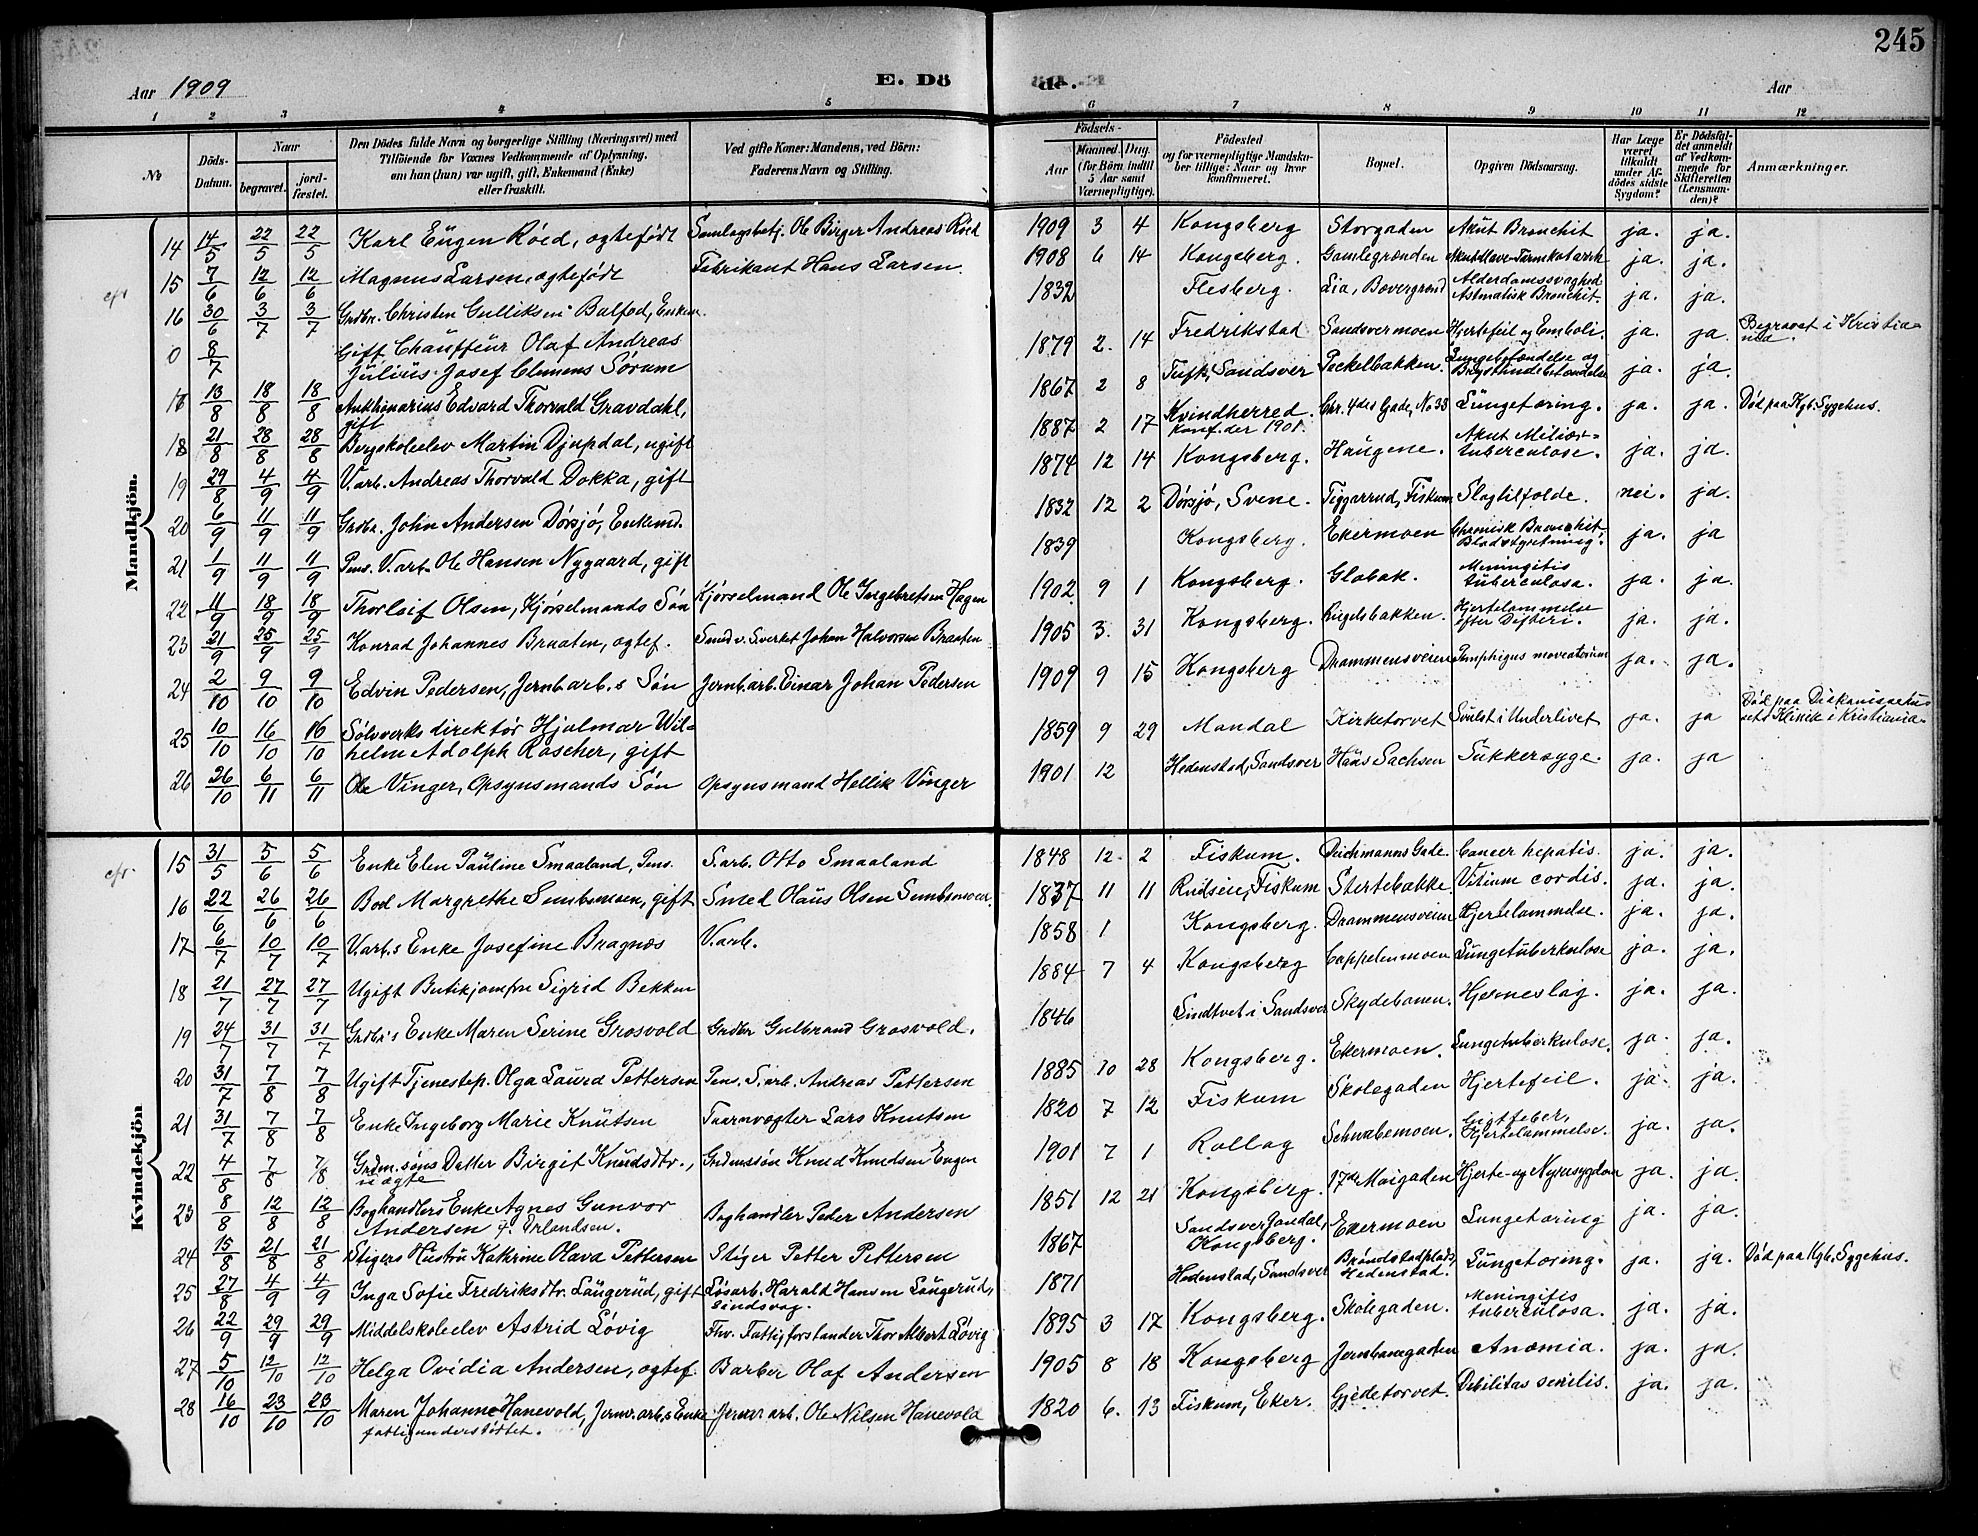 245
Aar 1909
E. Dö
de.
Aar
1 2 3 4 5 6 7 8 9 10 11 12
№
Döds-Datum.
Naar
begravet.
jord-fæstet.
Den Dödes fulde Navn og borgerlige Stilling (Næringsvei) med
Tilföiende for Voxnes Vedkommende af Oplysning,
om han (hun) var ugift, gift, Enkemand (Enke)
eller fraskilt.
Ved gifte Koner: Mandens, ved Börn:
Faderens Navn og Stilling.
Födsels-
Aar
Maaned.
Dag.
(for Börn indtil
5 Aar samt
Værnepligtige).
Födested
og for værnepligtige Mandska-
ber tillige: Naar og hvor
konfirmeret.
Bopæl.
Opgiven Dödsaarsag.
Har Læge
været
tilkaldt
under Af-
dödes sidste
Sygdom?
Er Dödsfal-
det anmeldt
af Vedkom-
mende for
Skifteretten
(Lensman-
den)?
Anmærkninger.
Mandkjön.
14 14/5 22/5 22/5 Karl Eugen Röed, ægtefödt Samlagsbetj. Ole Birger Andreas Röed 1909 3 4 Kongsberg Storgaden Akut Bronchit ja. ja.
15 7/6 12/6 12/6 Magnus Larsen, ægtefödt Fabrikant Hans Larsen. 1908 6 14 Kongsberg. Gamlegrænden ja. ja.
cfr 16 30/6 3/7 3/7 Grdbr. Christen Gulliksen Balfod, Enkem. 1832 Flesberg. Lia, Bævergrend Alderdomssvaghed
Astmatisk Bronchit. ja. ja.
0 8/7 Gift Chauffeur Olaf Andreas
Julius Josef Clemens Sörum 1879 2. 14 Fredrikstad Sandsvermoen Hjertefeil og Emboli. ja. ja Begravet i Kristia-
nia.
17 13/8 18/8 18/8 Auktionarius Edvard Thorvald Gravdahl,
gift 1867 2 8 Tufte, Sandsver Peckelbakken. Lungebetændelse og
Brysthindebetændelse ja. ja.
18 21/8 28/8 28/8 Bergskoleelev Martin Djupdal, ugift 1887 2 17 Kvindherred.
Konf. der 1901. Chr. 4des Gade, No 38 Lungetæring. ja. ja. Död paa Kgb. Sygehus.
19 29/8 4/9 4/9 V.arb. Andreas Thorvald Dokka, gift 1874 12 14 Kongsberg. Haugene. Akut Miliær-
tuberculose. ja. ja.
20 6/9 11/9 11/9 Grdbr. John Andersen Dörsjö, Enkemd. 1832 12 2 Dörsjö, Svene. Tiggarrud, Fiskum Slagtilfælde. nei. ja.
21 1/9 11/9 11/9 Pens. V.arb. Ole Hansen Nygaard, gift 1839 Kongsberg. Ekermoen Chronisk Bronchit,
Blodstyrtning. ja. ja
22 11/9 18/9 18/9 Thorleif Olsen, Kjörselmands Sön Kjörselmand Ole Ingebretsen Hagen 1902 9 1 Kongsberg. Glabak. Meningitis
tuberculosa. ja. ja.
23 21/9 25/9 25/9 Konrad Johannes Braaten, ægtef. Smed v. Sverket Johan Halvorsen Braaten 1905 3. 31 Kongsberg. Riegelsbakken. Hjertelammelse
efter Difteri. ja. ja.
24 2/10 9/10 9/10 Edvin Pedersen, Jernb.arb.s Sön Jernb.arb. Einar Johan Pedersen 1909 9 15 Kongsberg Drammensveien Pemphigus neonatorum ja. ja.
25 10/10 16/10 16/10 Sölvverksdirektör Hjalmar Wil-
helm Adolph Roscher, gift 1859 9 29 Mandal Kirketorvet Svulst i Underlivet ja. ja Död paa Diakonissehu-
sets Klinik i Kristiania.
26 26/10 6/11 6/11 Ole Vinger, Opsynsmands Sön Opsynsmand Hellik Vinger 1901 12 Hedenstad, Sandsver Hans Sachsen Sukkersyge. ja. ja
Kvindekjön
cfr. 15 31/5 5/6 5/6 Enke Elen Pauline Smaaland, Pens. S.arb. Otto Smaaland 1848 12. 2 Fiskum. Deichmanns Gade. Cancer hepatis. ja. ja.
16 22/6 26/6 26/6 Boel Margrethe Sembsmoen, gift Smed Olaus Olsen Sembsmoen. 1837 11 11 Rudseie, Fiskum Stertebakke. Vitium cordis. ja. ja.
17 6/7 10/7 10/7 V.arb.s Enke Josefine Bragnæs V.arb. 1858 1 Kongsberg. Drammensveien Hjertelammelse. ja. ja.
18 21/7 27/7 27/7 Ugift Butikjomfru Sigrid Bekken 1884 7 4 Kongsberg Cappelenmoen Lungetuberkulose ja. ja.
19 24/7 31/7 31/7 Grdbr's Enke Maren Serine Grosvold Grdbr Gulbrand Grosvold. 1846 i Sandsver Skydebanen. Hjerneslag. ja. ja.
20 31/7 7/8 7/8 Ugift Tjenestep. Olga Laura Pettersen Pens. S.arb. Andreas Pettersen 1885 10 28 Kongsberg. Ekermoen. Lungetuberkulose. ja. ja.
21 31/7 7/8 7/8 Enke Ingeborg Marie Knutsen Taarnvægter Lars Knutsen 1820 7 12 Fiskum Skolegaden Hjertefeil. ja. ja.
22 4/8 7/8 7/8 Grdm.söns Datter Birgit Knudsdtr.,
uægte Grdmssön Knud Knudsen Engen 1901 7 1 Rollag Schwabemoen. Gigtfeber,
Hjertelammelse. ja. ja.
23 8/8 12/8 12/8 Boghandlers Enke Agnes Gunvor
Andersen f. Erlandsen. Boghandler Peder Andersen 1851 12 21 Kongsberg. 17de Maigaden Hjerte- og Nyresygdom ja. ja.
24 15/8 21/8 21/8 Stigers Hustru Kathrine Olava Pettersen Stiger Petter Pettersen 1867 Sandsver Jondal,
Kongsberg. Ekermoen Lungetæring ja. ja.
25 27/8 4/9 4/9 Inga Sofie Fredriksdtr. Laugerud, gift Lösarb. Harald Hansen Laugerud,
sindssvag. 1871 Hedenstad, Sandsver Bröndstadplads,
Hedenstad. Lungetæring. ja. ja. Död paa Kgb. Sygehus.
26 22/9 29/9 29/9 Middelskoleelev Astrid Lövig Fhv. Fattigforstander Thor Albert Lövig 1895 3 17 Kongsberg. Skolegaden. Meningitis
tuberculosa. ja. ja.
27 5/10 12/10 12/10 Helga Ovidia Andersen, ægtef. Barber Olaf Andersen 1905 8 18 Kongsberg Jernbanegaden Anæmia. ja. ja.
28 16/10 23/10 23/10 Maren Johanne Hanevold, Jernv.arb.s Enke
fattigunderstöttet. Jernv.arb. Ole Nilsen Hanevold 1820 6. 13 Fiskum, Eker. Gjedetorvet. Debilitas senilis. ja. ja.